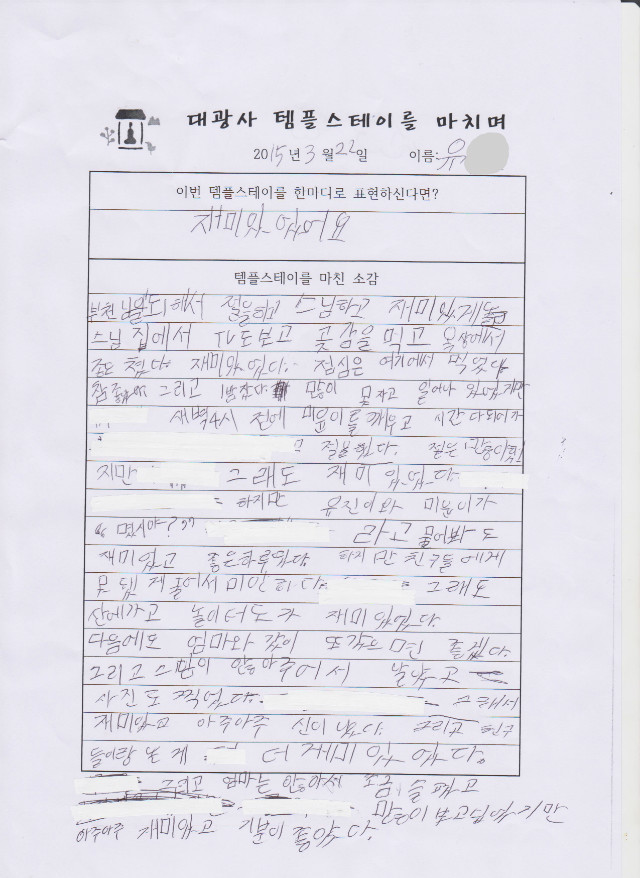 대광사 템플스테이를 마치며
2015년 3월 22일 이름: 유
이번 템플스테이를 한마디로 표현하신다면?
재미있었어요
템플스테이를 마친 소감
해서 절을하고 스님하고 재미있게
스님 집에서 TV도보고 곶감을 먹고 옥상에서
쳤다. 재미있었다. 점심은 여기에서 먹었다
그리고 많이 못자고 일어나 있었지만
새벽4시 전에 미윤이를 깨우고 시간 다되어가
절을 했다. 절은
지만 그래도 재미있었다.
하지만 유진이와 미윤이가
"몇시야?" 라고 물어봐도
재미있고 좋은하루였다 하지만 친구들에게
못됐게 굴어서 미안하다. 그래도
산에가고 놀이터도가 재미있었다.
다음에도 엄마와 같이 또갔으면 좋겠다.
그리고 스님이 안아주어서 날아갔고
사진도 찍었다. 그래서
재미있고 아주아주 신이났다. 그리고 친구
들이랑 노는게 더 재미있었다.
그리고 엄마는 않아서 조금 슬퍼고
많이 보고싶었지만
아주아주 재미있고 기분이 좋았다.